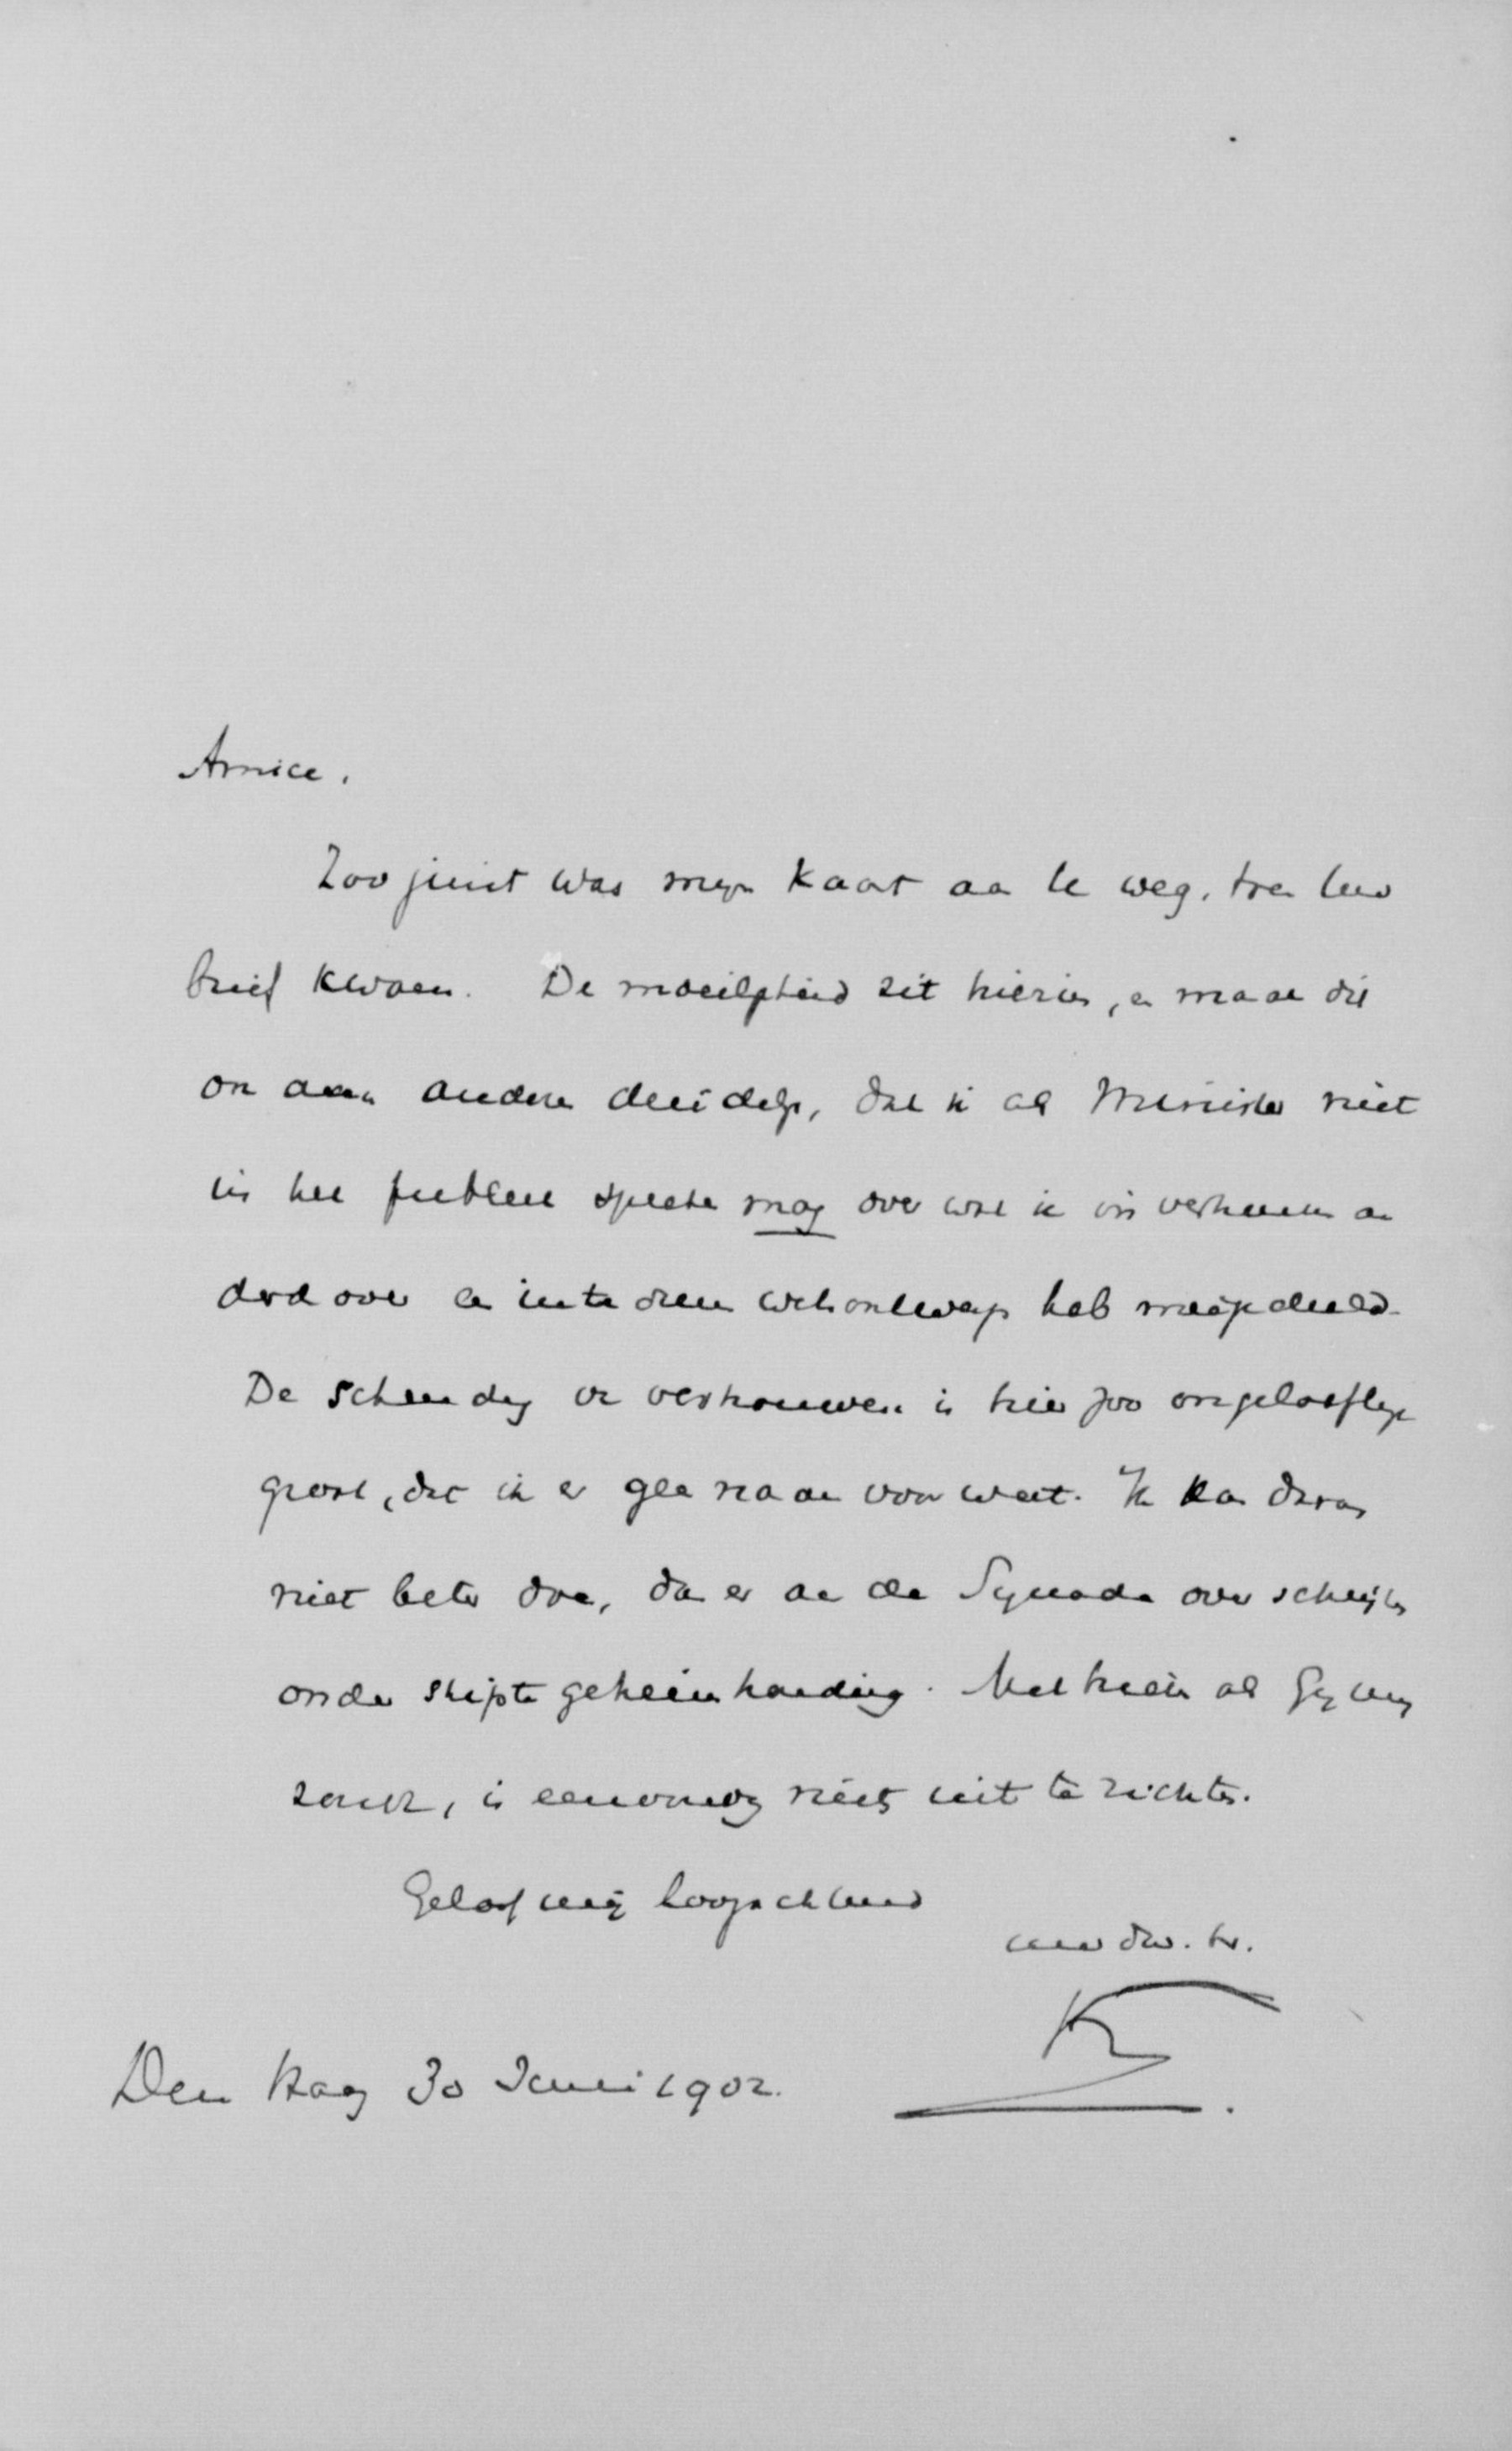 Amice.
Zoo juist was mijn kaart aan de weg, toen uw
brief kwam. De moeilijkheid zit hierin, en maak dit
ook aan andere duidelijk, dat ik als Minister niet
in het publiek spreken mag over wat ik in vertrouwen aan
derden over in te dienen wetsontwerp heb meegedeeld.
De schending van vertrouwen is hier zoo ongelooflijk
groot, dat ik er geen naam voor weet. Ik kan daarom
niet beter doen, dan er aan de Synode over schrijven
onder stipte geheimhouding. Met als Gij mij
zondt, is eenvoudig niets uit te richten.
Geloof mij hoogachtend
uw dw. dr.
K
Den Haag 30 Juni 1902.